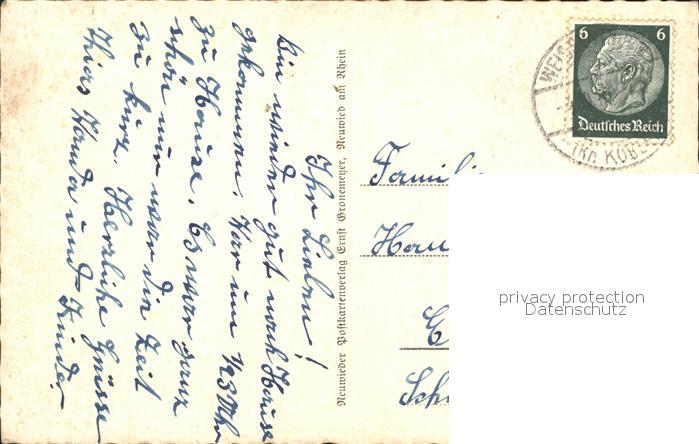 Ihr Lieben!
Bin wieder gut nach Hause
gekommen. War um 1/23 Uhr
zu Hause. Es war ganz
schön nur war die Zeit
zu kurz. Herzliche Grüsse
und Kinder
Neuwieder Postkartenverlag Ernst Gronemeyer, Neuwied am Rhein
6 6
Deutsches Reich
WEISS
(Kr. KOBL
Familie
privacy protection
Datenschutz